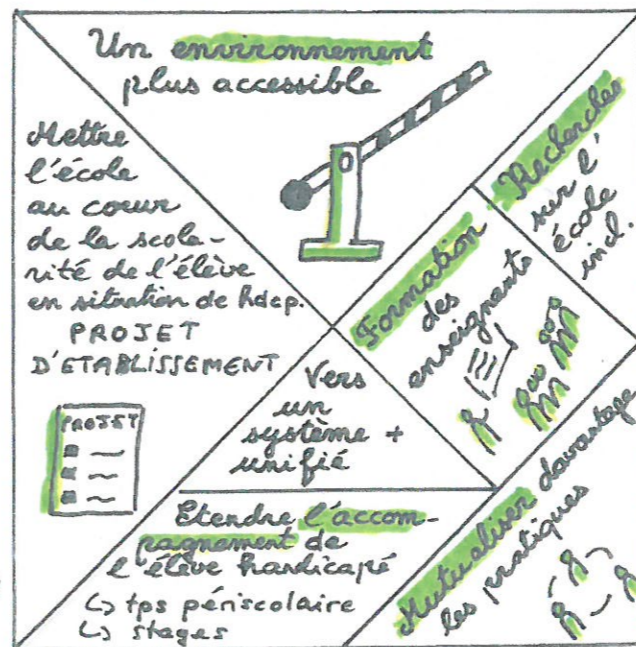 Un environnement
plus accessible
Mettre
l'école
au coeur
de la scola-
rité de l'élève
en situation de hdcp.
PROJET
D'ETABLISSEMENT
PROJET
Recherches
sur l'
école
incl.
Formation
des
enseignants
Vers
un
système +
unifié
Etendre l'accom-
pagnement de
l'élève handicapé
↳ tps périscolaire
↳ stages
Mutualiser davantage
les pratiques